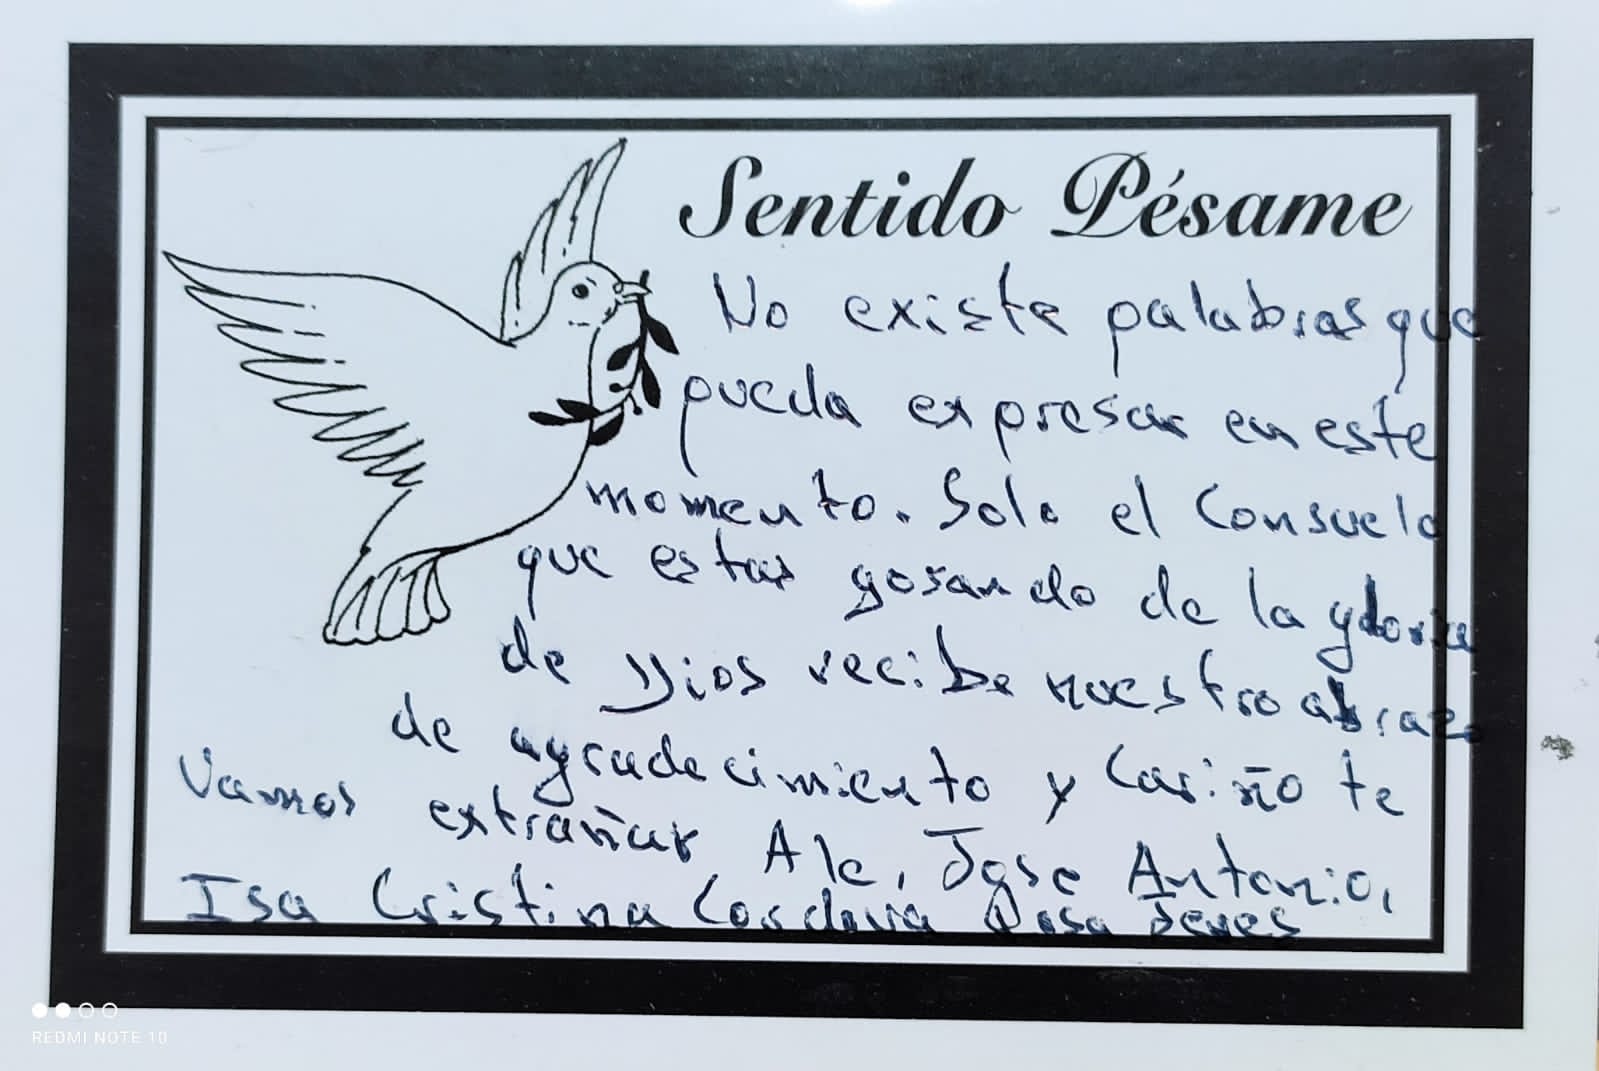 Sentido Pésame
No existe palabras que
pueda expresar en este
momento. Solo el Consuelo
que estas gosando de la gloria
de Dios recibe nuestro abrazo
de agradecimiento y Cariño te
Vamos extrañar Ale, Jose Antonio,
Isa Cristina Cordova Rosa
REDMI NOTE 10